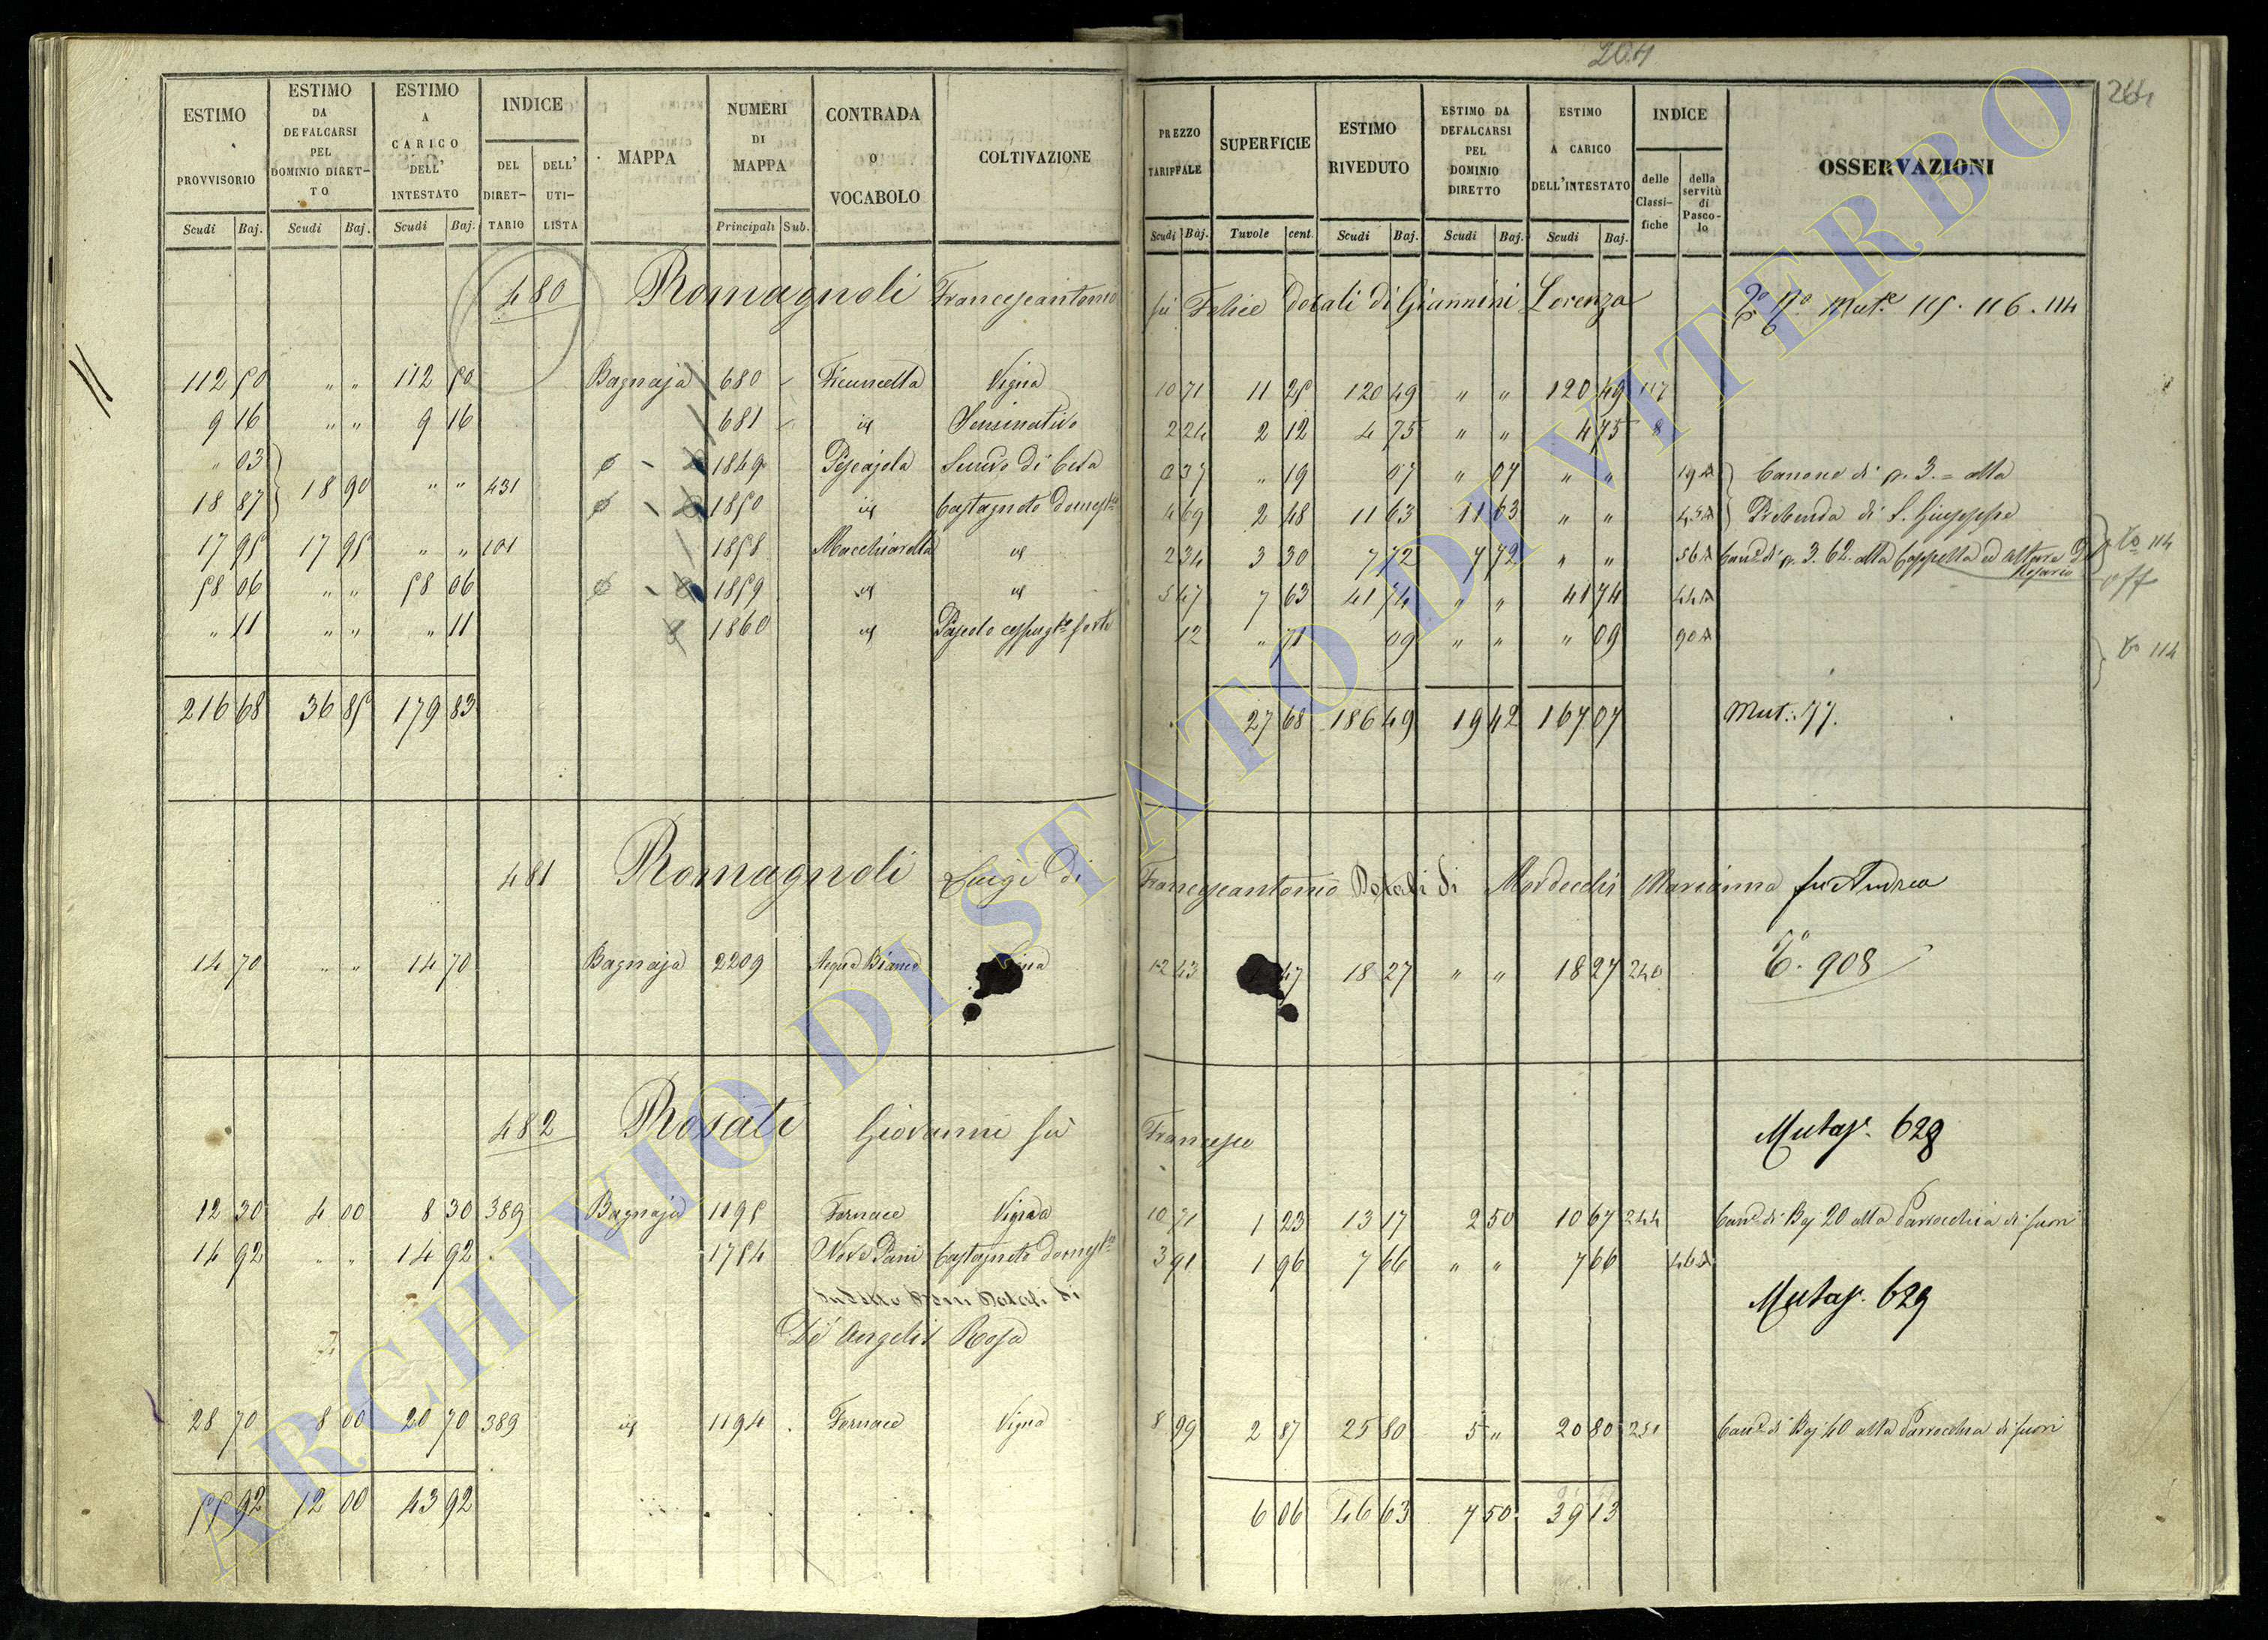 204
264
ESTIMO PROVVISORIO
ESTIMO DA DEFALCARSI PEL DOMINIO DIRET-TO
ESTIMO A CARICO DELL' INTESTATO
INDICE
DEL DIRET-TARIO
DELL' UTI-LISTA
MAPPA
NUMERI DI MAPPA
CONTRADA O VOCABOLO
COLTIVAZIONE
PREZZO TARIFFALE
SUPERFICIE
ESTIMO RIVEDUTO
ESTIMO DA DEFALCARSI PEL DOMINIO DIRETTO
ESTIMO A CARICO DELL'INTESTATO
INDICE
delle Classi-fiche
della servitù di Pasco-lo
OSSERVAZIONI
Scudi Baj. Scudi Baj. Scudi Baj. Principali Sub. Scudi Baj. Tavole cent. Scudi Baj. Scudi Baj. Scudi Baj.
480 Romagnoli Francescantonio fù Felice dotali di Giannini Lorenza Mut.e 115. 116. 114
112 50 " " 112 50 Bagnaja 680 Vigna 10 71 11 25 120 49 " " 120 49 117
9 16 " " 9 16 681 id Seminativo 2 24 2 12 4 75 " " 4 75 8
" 03 1849 Pescajola 0 37 " 19 07 " 07 " " 19 Canone di p. 3. = alla
18 87 18 90 " " 431 1850 id Castagneto domest.co 4 69 2 48 11 63 11 63 " " 43 Prebenda di S. Giuseppe
17 95 17 95 " " 101 1858 Macchiarella id 2 34 3 30 7 72 7 72 " " 56 Can.e di p. 3. 62. alla Cappella ed altare del Rosario
114
58 06 " " 58 06 1859 id id 5 47 7 63 41 74 " " 41 74 44
" 11 " " " 11 1860 id Pascolo cespugl.to forte 12 " 71 09 " " " 09 90
114
216 68 36 85 179 83 27 68 186 49 19 42 167 07 Mut.: 77.
481 Romagnoli Luigi di Francescantonio Dotali di Marianna fu Andrea
14 70 " " 14 70 Bagnaja 2209 Acqua Bianca 12 43 47 18 27 " " 18 27 240 908
482 Rosati Giovanni fù Francesco Mutaz. 629
12 30 4 00 8 30 389 Bagnaja 1195 Fornace Vigna 10 71 1 23 13 17 2 50 10 67 244 Can.e di Baj 20 alla Parrocchia di fuori
14 92 " " 14 92 1754 Nove Pani Castagneto domest.co 3 91 1 96 7 66 " " 7 66 46
Sudetto Beni Dotali di
De Angelis Rosa
Mutaz. 629
28 70 8 00 20 70 389 id 1194 Fornace Vigna 8 99 2 87 25 80 5 " 20 80 251 Can.e di Baj 40 alla Parrocchia di fuori
55 92 12 00 43 92 6 06 46 63 7 50 39 13
ARCHIVIO DI STATO DI VITERBO